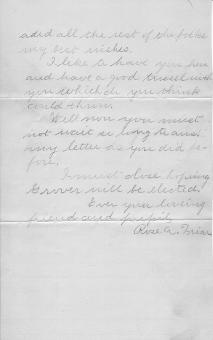 and all the rest of the folks
my best wishes.
I like to have you here
and have a good with
you which do you think
could
Well now you must
not wait so long to ans
my letter as you did be-
fore.
I must close hoping
Grover will be elected.
Ever your loving
friend and pupil
Rose A.